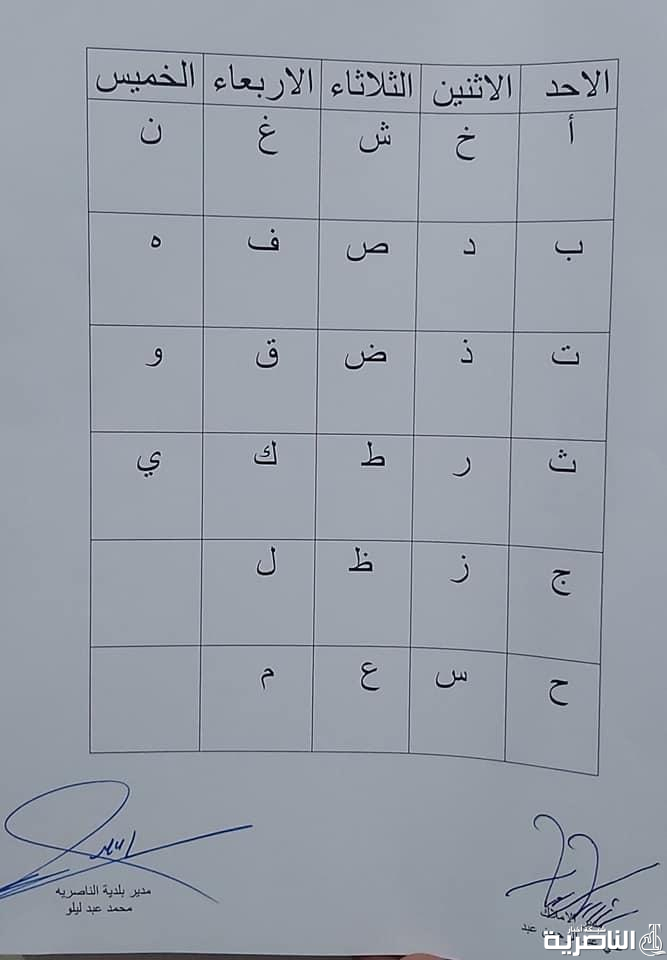 الاحد الاثنين الثلاثاء الاربعاء الخميس
أ خ ش غ ن
ب د ص ف ه
ت ذ ض ق و
ث ر ط ك ي
ج ز ظ ل
ح س ع م
مدير بلدية الناصريه
محمد عبد ليلو
الاملاك
عبد
شبكة اخبار
الناصرية